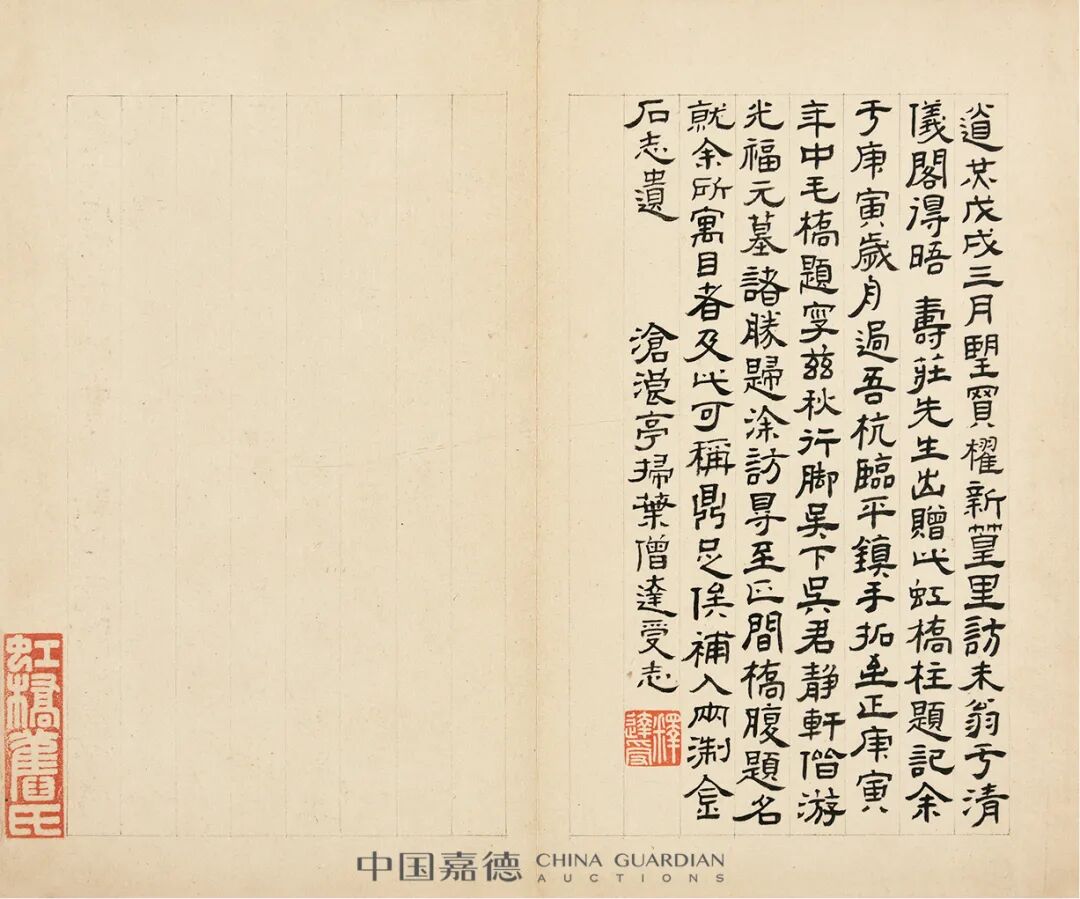 道光戊戌三月望買櫂新篁里訪未翁于清
儀閣得晤 壽莊先生出贈此虹橋柱題記余
于庚寅歲月過吾杭臨平鎮手拓至正庚寅
年中毛橋題字茲秋行脚吳下吳君靜軒偕游
光福元墓諸勝歸涂訪尋至正間橋腹題名
就余所寓目者及此可稱鼎足俟補入兩浙金
石志遺
滄浪亭掃葉僧達受志
釋達受
虹橋舊氏
中国嘉德 CHINA GUARDIAN
AUCTIONS